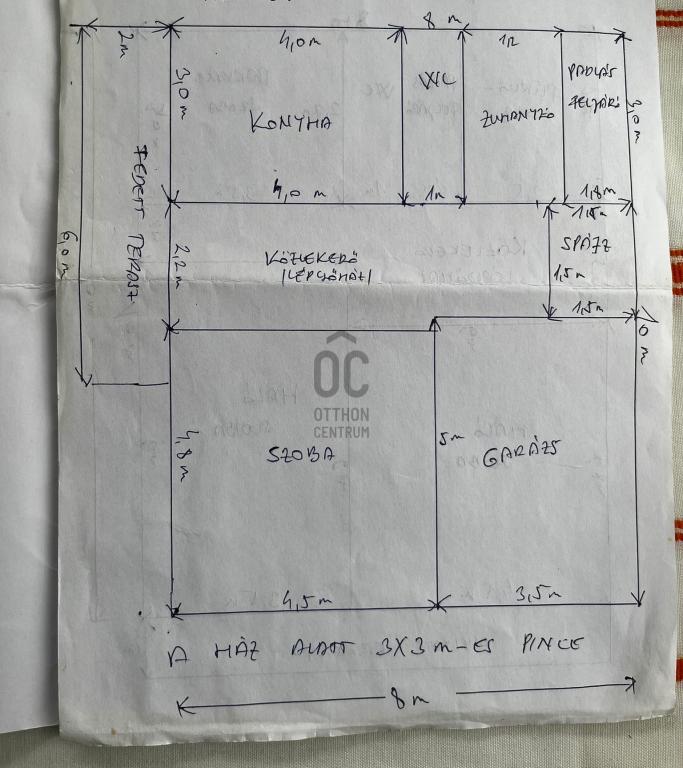 8 m
2m
4,0m
1,2
3,0m
KONYHA
WC
ZUHANYZÓ
PADLÁS
FELJÁRÓ
3,0m
4,0 m
1m
1,8m
1,5m
FEDETT TERASZ
6,0m
2,2m
KÖZLEKEDŐ
(LÉPCSŐHÁZ)
SPÁJZ
1,5m
1,5m
OC
OTTHON
CENTRUM
4,8m
SZOBA
5m
GARÁZS
4,5m
3,5m
A HÁZ ALATT 3X3 m-ES PINCE
8m